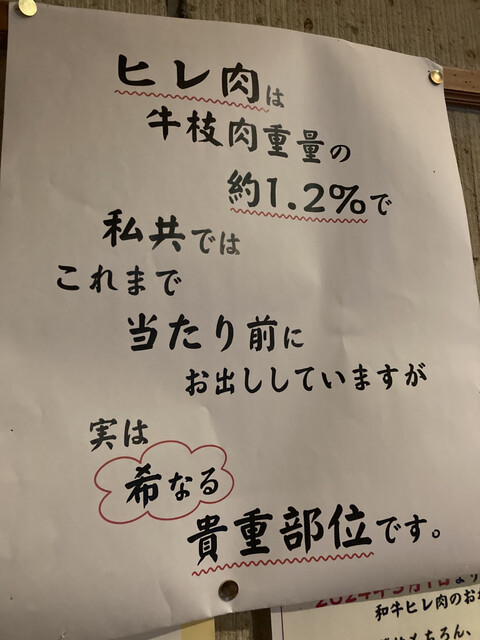 ヒレ肉は
牛枝肉重量の
約1.2%で
私共では
これまで
当たり前に
お出ししていますが
実は
希なる
貴重部位です。
和牛ヒレ肉のお